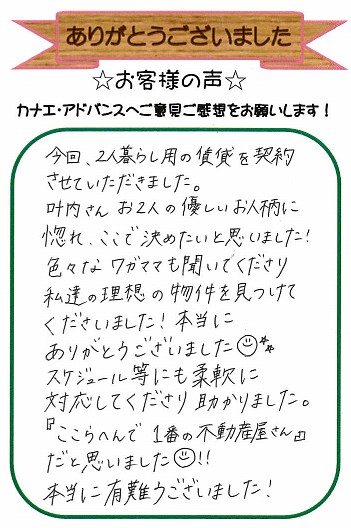 ありがとうございました
☆お客様の声☆
カナエ・アドバンスへご意見ご感想をお願いします！
今回、2人暮らし用の賃貸を契約
させていただきました。
叶内さん お2人の優しいお人柄に
惚れ、ここで決めたいと思いました!
色々な ワガママも聞いてくださり
私達の理想の物件を見つけて
くださいました! 本当に
ありがとうございました☺
スケジュール等にも柔軟に
対応してくださり 助かりました。
『ここらへんで 1番の不動産屋さん』
だと思いました☺!!
本当に有難うございました!